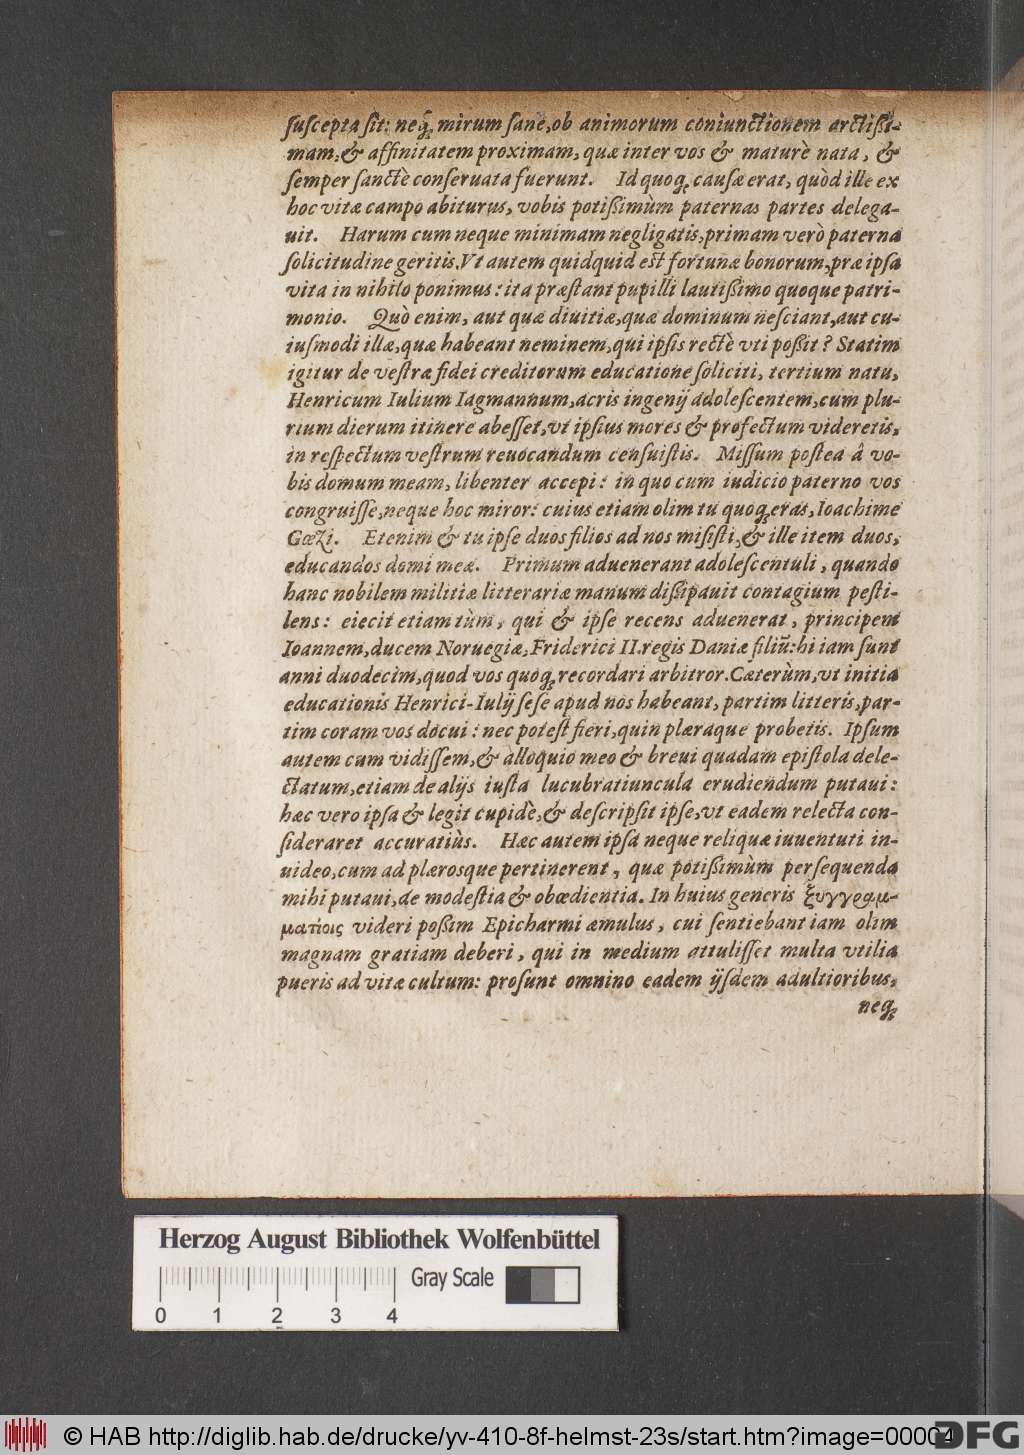 ſuſcepta ſit: neq́; mirum ſanè, ob animorum coniunctionem arctißi-
mam, & affinitatem proximam, quæ inter vos & maturè nata, &
ſemper ſanctè conſeruata fuerunt. Id quoq; cauſæ erat, quòd ille ex
hoc vitæ campo abiturus, vobis potißimùm paternas partes delega-
uit. Harum cum neque minimam negligatis, primam verò paterna
ſolicitudine geritis. Vt autem quidquid est fortunæ bonorum, præ ipſa
vita in nihilo ponimus: ita præſtant pupilli lautißimo quoque patri-
monio. Quò enim, aut quæ diuitiæ, quæ dominum neſciant, aut cu-
iuſmodi illæ, quæ habeant neminem, qui ipſis rectè vti poßit? Statim
igitur de veſtræ fidei creditorum educatione ſoliciti, tertium natu,
Henricum Iulium Iagmannum, acris ingenij adoleſcentem, cum plu-
rium dierum itinere abeſſet, vt ipſius mores & profectum videretis,
in reſpectum veſtrum reuocandum cenſuiſtis. Miſſum poſtea â vo-
bis domum meam, libenter accepi: in quo cum iudicio paterno vos
congruiſſe, neque hoc miror: cuius etiam olim tu quoq; eras, Ioachime
Gœzi. Etenim & tu ipſe duos filios ad nos miſiſti, & ille item duos,
educandos domi meæ. Primum aduenerant adoleſcentuli, quando
hanc nobilem militiæ litterariæ manum dißipauit contagium peſti-
lens: eiecit etiam tùm, qui & ipſe recens aduenerat, principem
Ioannem, ducem Noruegiæ, Friderici II. regis Daniæ filiũ: hi iam ſunt
anni duodecim, quod vos quoq; recordari arbitror. Cæterùm, vt initia
educationis Henrici-Iulij ſeſe apud nos habeant, partim litteris, par-
tim coram vos docui: nec poteſt fieri, quin plæraque probetis. Ipſum
autem cum vidiſſem, & alloquio meo & breui quadam epiſtola dele-
ctatum, etiam de alijs iuſta lucubratiuncula erudiendum putaui:
hæc vero ipſa & legit cupidè, & deſcripſit ipſe, vt eadem relecta con-
ſideraret accuratiùs. Hæc autem ipſa neque reliquæ iuuentuti in-
uideo, cum ad plæroſque pertinerent, quæ potißimùm perſequenda
mihi putaui, de modeſtia & obœdientia. In huius generis ξυγγραμ-
ματίοις videri poßim Epicharmi æmulus, cui ſentiebant iam olim
magnam gratiam deberi, qui in medium attuliſſet multa vtilia
pueris ad vitæ cultum: proſunt omnino eadem ijſdem adultioribus,
neq;
Herzog August Bibliothek Wolfenbüttel
Gray Scale
0 1 2 3 4
© HAB http://diglib.hab.de/drucke/yv-410-8f-helmst-23s/start.htm?image=00004
DFG